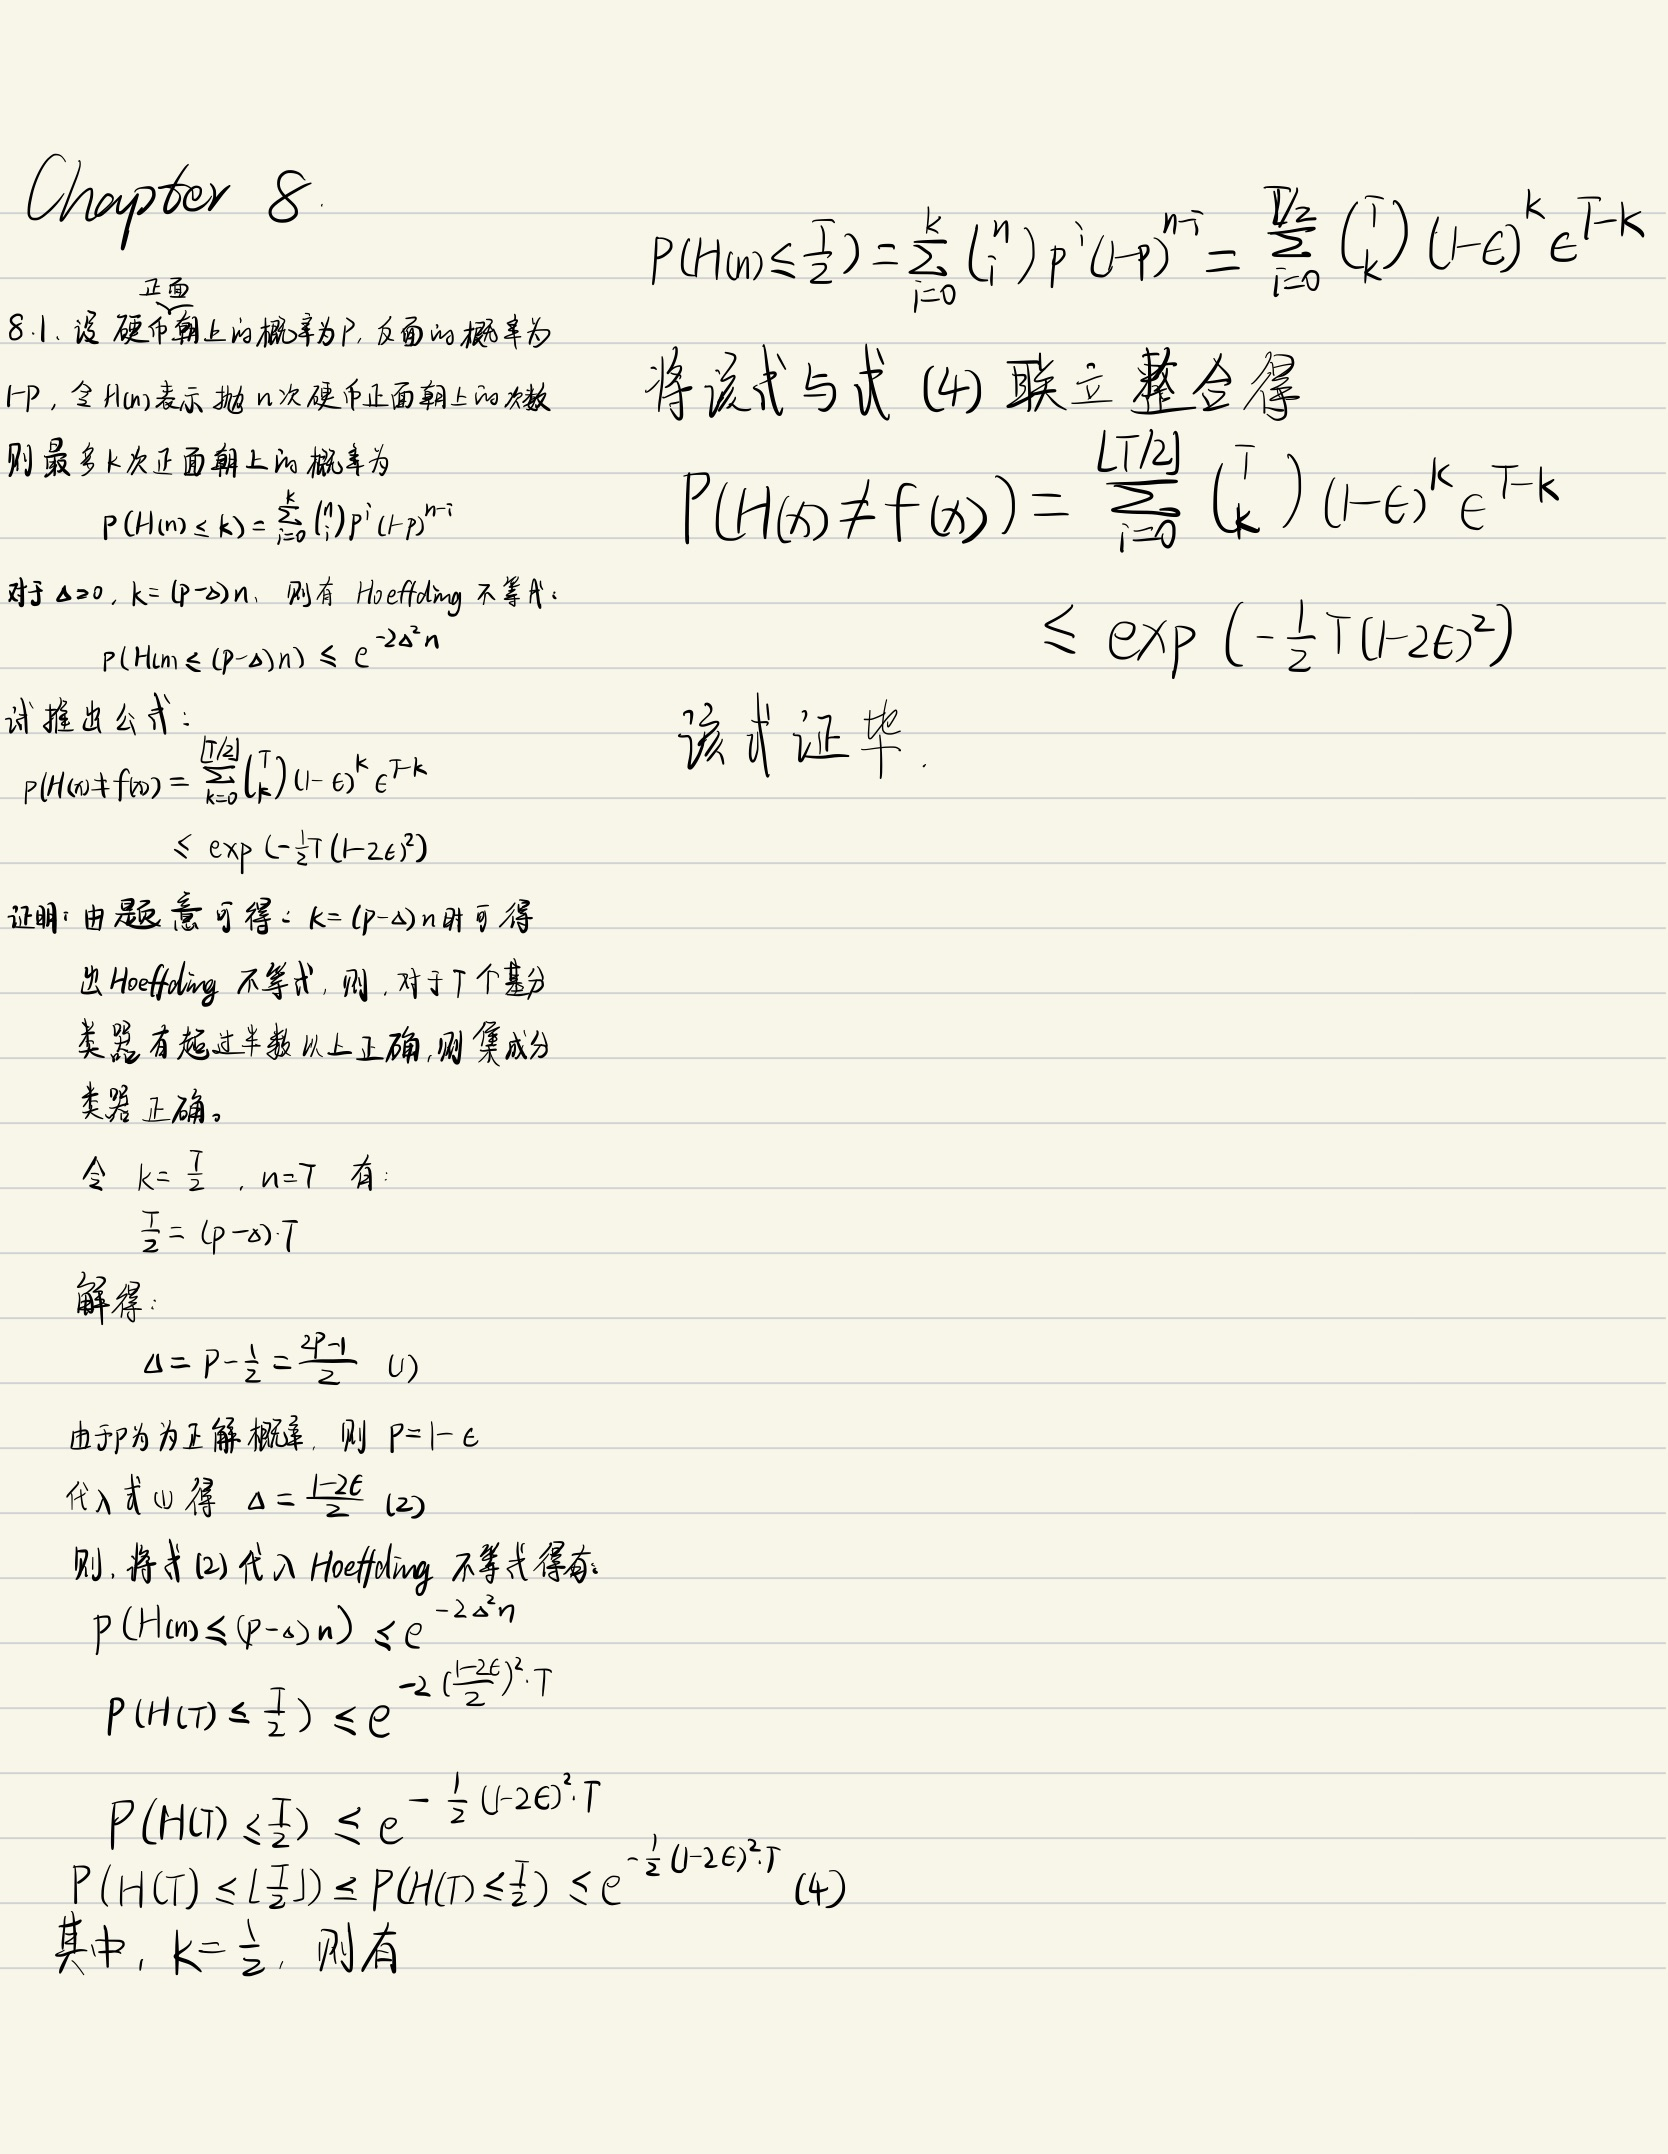 Chapter 8.
正面
8.1. 设硬币朝上的概率为P, 反面的概率为
1-P, 令H(n)表示抛n次硬币正面朝上的次数
则最多k次正面朝上的概率为
P(H(n) ≤ k) = \sum_{i=0}^{k} \binom{n}{i} p^i (1-p)^{n-i}
对于 Δ≥0, k = (P-Δ)n, 则有 Hoeffding 不等式:
P(H(n) ≤ (P-Δ)n) ≤ e^{-2Δ²n}
试推出公式:
P(H(x)≠f(x)) = \sum_{k=0}^{⌊T/2⌋} \binom{T}{k} (1-ϵ)^k ϵ^{T-k}
≤ exp (-\frac{1}{2}T(1-2ϵ)²)
证明: 由题意可得: k = (P-Δ)n时可得
出Hoeffding 不等式, 则, 对于T个基分
类器有超过半数以上正确, 则集成分
类器正确。
令 k = \frac{T}{2}, n=T 有:
\frac{T}{2} = (P-Δ)·T
解得:
Δ = P - \frac{1}{2} = \frac{2P-1}{2} (1)
由于P为为正解概率, 则 P = 1-ϵ
代入式(1)得 Δ = \frac{1-2ϵ}{2} (2)
则, 将式(2)代入 Hoeffding 不等式得有:
P(H(n) ≤ (P-Δ)n) ≤ e^{-2Δ²n}
P(H(T) ≤ \frac{T}{2}) ≤ e^{-2(\frac{1-2ϵ}{2})²·T}
P(H(T) ≤ \frac{T}{2}) ≤ e^{-\frac{1}{2}(1-2ϵ)²·T}
P(H(T) ≤ ⌊\frac{T}{2}⌋) ≤ P(H(T) ≤ \frac{T}{2}) ≤ e^{-\frac{1}{2}(1-2ϵ)²·T} (4)
其中, k = \frac{1}{2}, 则有
P(H(n) ≤ \frac{T}{2}) = \sum_{i=0}^{k} \binom{n}{i} p^i (1-p)^{n-i} = \sum_{i=0}^{T/2} \binom{T}{k} (1-ϵ)^k ϵ^{T-k}
将该式与式 (4) 联立整合得
P(H(x)≠f(x)) = \sum_{i=0}^{⌊T/2⌋} \binom{T}{k} (1-ϵ)^k ϵ^{T-k}
≤ exp (-\frac{1}{2}T(1-2ϵ)²)
该式证毕.